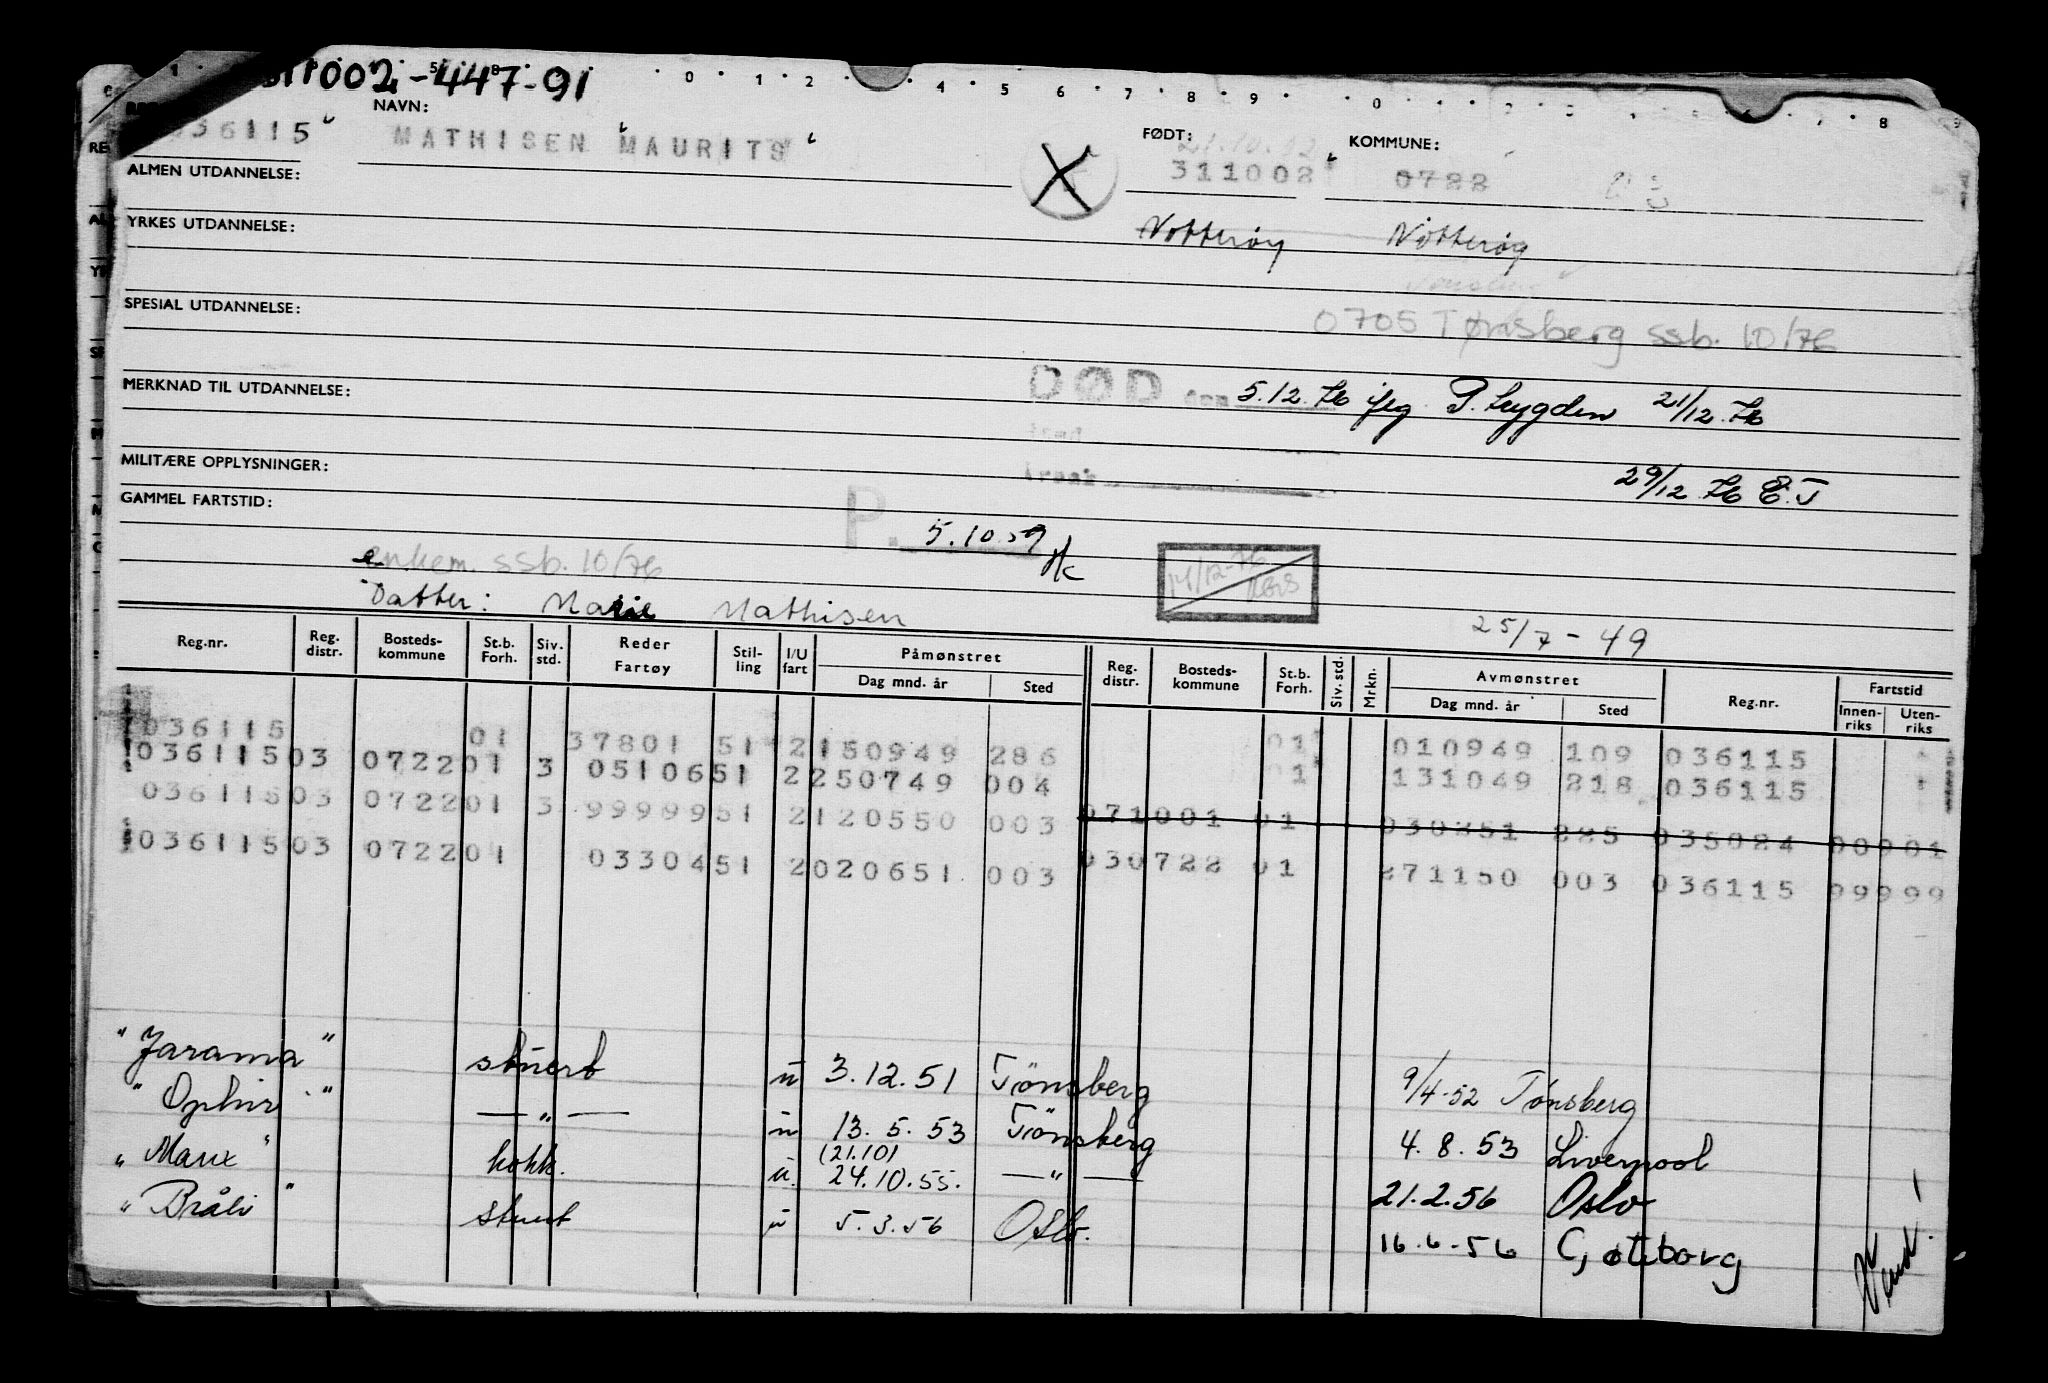 311002-447-91
NAVN: FØDT: KOMMUNE:
036115 MATHISEN MAURITS 311002 0722
ALMEN UTDANNELSE:
YRKES UTDANNELSE: Nøtterøy Nøtterøy
SPESIAL UTDANNELSE: 0705 Tønsberg ssb. 10/76
MERKNAD TIL UTDANNELSE: DØD den 5.12.76 21/12.76
MILITÆRE OPPLYSNINGER: 29/12.76 E.J
GAMMEL FARTSTID: P. 5.10.59
enkem. ssb. 10/76 14/12-76
Datter: Marie Mathisen 25/7-49
Reg.nr. Reg. distr. Bosteds-kommune St.b. Forh. Siv. std. Reder Fartøy Stil-ling I/U fart Påmønstret Dag mnd. år Sted Reg. distr. Bosteds-kommune St.b. Forh. Siv. std. Mrkn. Avmønstret Dag mnd. år Sted Reg.nr. Fartstid Innen-riks Uten-riks
036115 01 37801 51 2 150949 286 01 010949 109 036115
036115 03 0722 01 3 05106 51 2 250749 004 1 131049 218 036115
036115 03 0722 01 3 99999 51 2 120550 003 071001 01 030351 225 035024 00901
036115 03 0722 01 03304 51 2 020651 003 030722 01 271150 003 036115 99999
"Jarama" stuert u 3.12.51 Tönsberg 9/4-52 Tønsberg
"Ophir" —"— u 13.5.53 Tönsberg 4.8.53 Liverpool
(21.10)
"Manx" kokk. u. 24.10.55. —"— 21.2.56 Oslo
"Bråli" stuert u 5.3.56 Oslo. 16.6-56 Gøteborg
Vend!